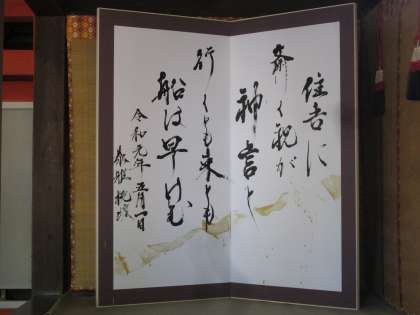 住吉に
斎く祝が
神言と
行くとも来とも
船は早けむ
令和元年五月一日